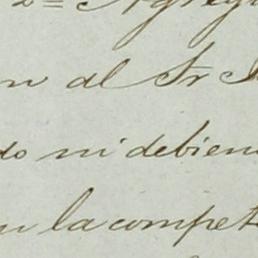 2º Agreg
n al Sr
do ni debien
n la compet